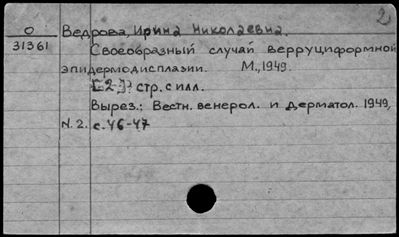 2
О Ведрова, Ирина Николаевна.
31361 Своеобразный случай верруциформной
эпидермодисплазии. М., 1949.
[2]. стр. с илл.
Вырез.: Вестн. венерол. и дерматол. 1949,
N. 2. с. 46-47